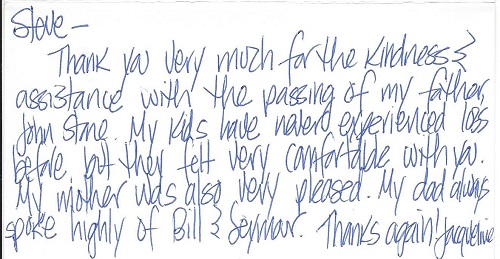 Steve -
Thank you very much for the kindness &
assistance with the passing of my father,
John Stone. My kids have never experienced loss
before but they felt very comfortable with you.
My mother was also very pleased. My dad always
spoke highly of Bill & Seymour. Thanks again! Jacqueline